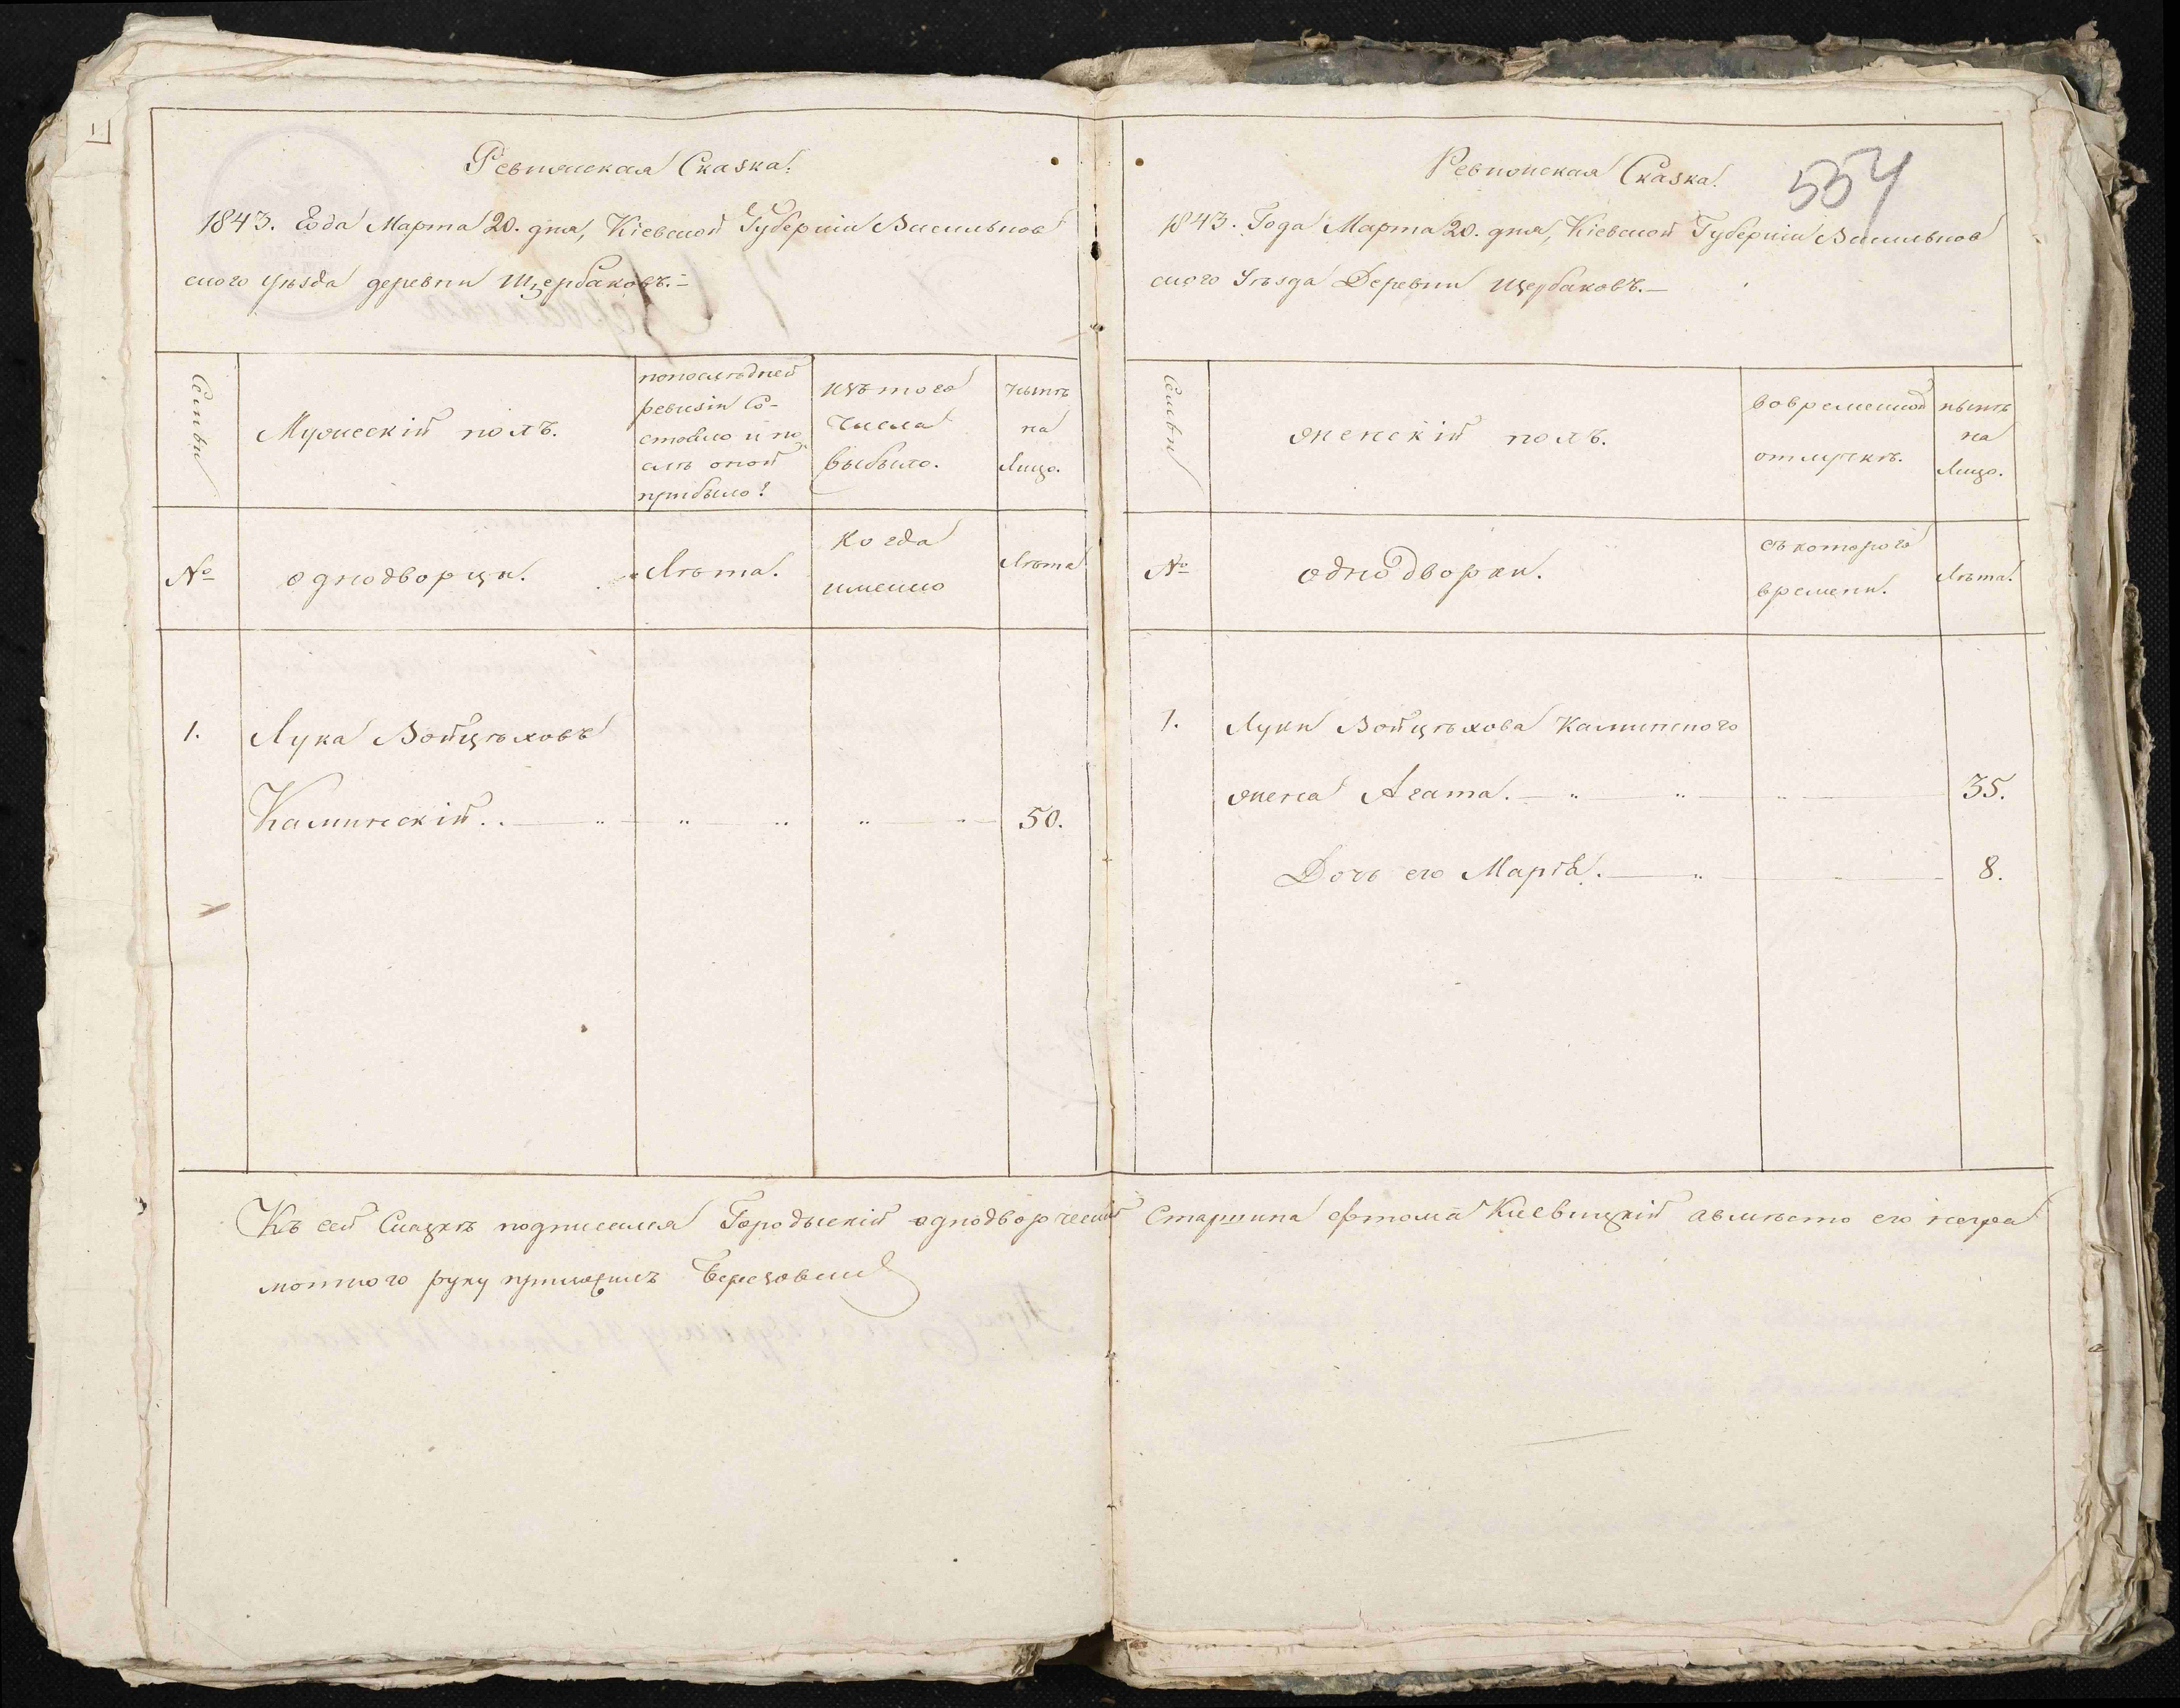 Ревизская Сказка.
1843. Года Марта 20. дня, Кіевской Губерніи Васильков
ского уѣзда деревни Щербаковъ.
Семьи
Мужескій полъ.
попослѣдней
ревизіи Со-
стояло и по
слѣ оной
прибыло?
изъ того
Числа
выбыло.
нынѣ
на
Лицо.
№
однодворцы.
Лѣта.
Когда
именно
Лѣта
1.
Лука Войцѣховъ
Каминскій. 50.
554
Ревизская Сказка.
1843. Года Марта 20. дня, Кіевской Губерніи Васильков
ского Уѣзда Деревни Щербаковъ.
Семьи
женскій полъ.
вовременной
отлучкѣ.
нынѣ
на
Лицо.
№
однодворки.
съ которого
времени.
Лѣта.
1. Луки Войцѣхова Каминского
жена Агата. 35.
Дочь его Марія. 8.
Къ сей Сказкѣ подписался Городыскій однодворческій Старшина Киевицкій авмѣсто его негра
мотного руку приложилъ